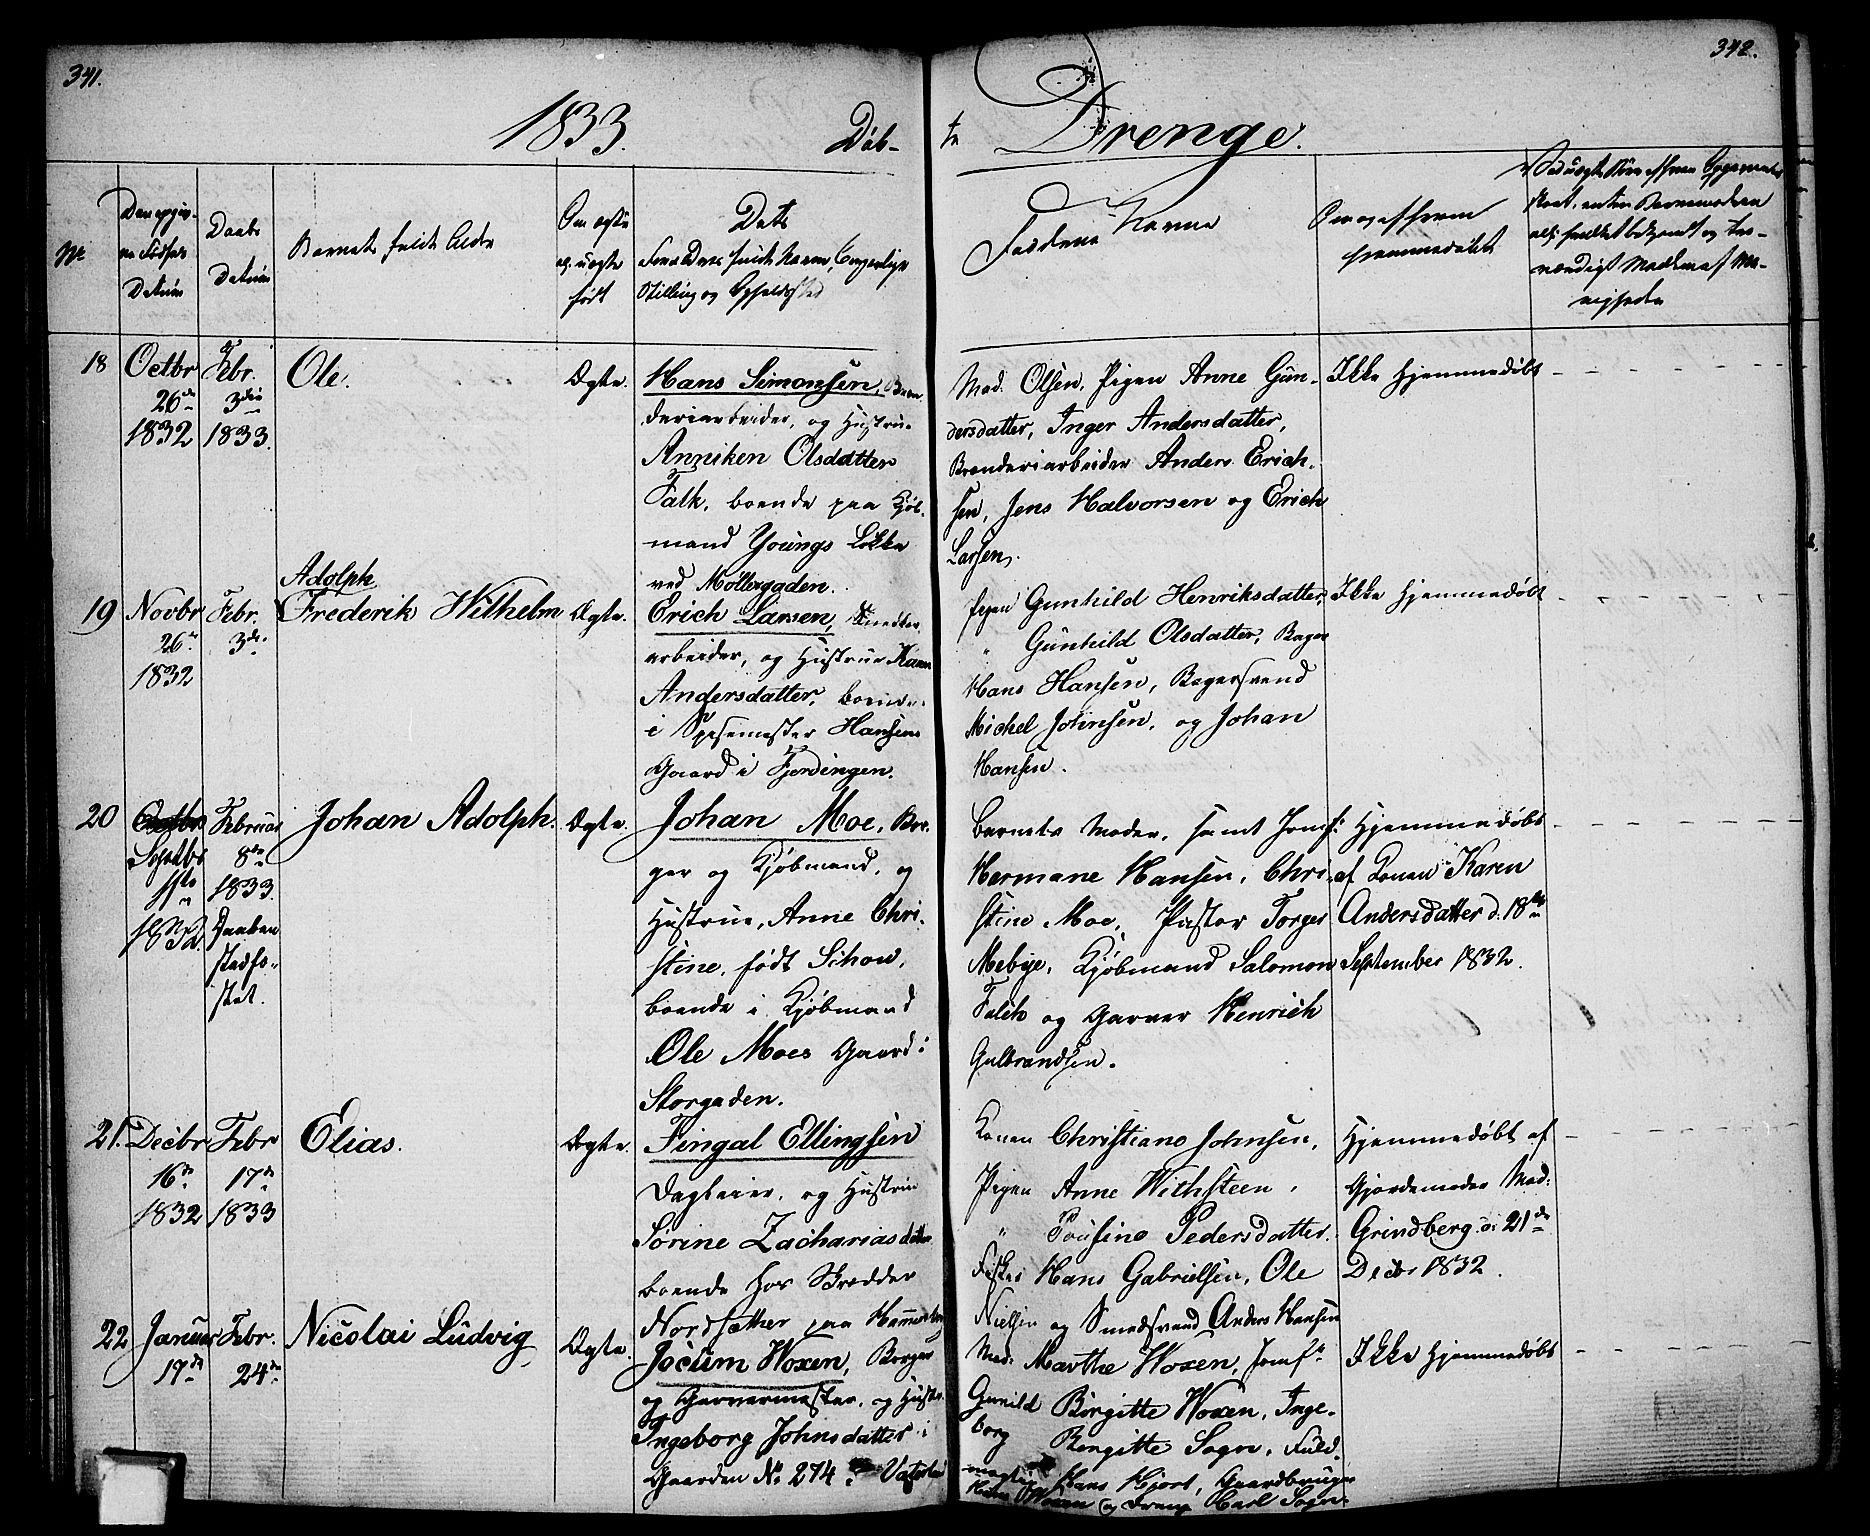 341.
342.
1833.
Döb-
te
Drenge.
No
Den opgiv-
ne Födsels
Datum
Daabs
Datum
Barnets fulde
Om ægte
el. uægte
født
Dets
Forældres fulde Navne, Borgerlige
Stilling og Opholdssted
Faddernes Navne
hjemmedøbt
18
Octbr
26de
1832
Febr.
3die
1833.
Ole.
Ægte.
Hans Simonsen,
deriarbeider, og Hustrue
Anniken Olsdatter
Falk, boende paa Kjöb-
mand Youngs Løkke
ved Möllergaden.
Mad. Olsen, Pigen Anne Gun-
dersdatter, Inger Andersdatter,
Brenderiarbeider Anders Erich-
sen, Jens Halvorsen og Erich
Larsen.
Ikke hjemmedøbt
19
Novbr
26
1832
Febr.
3die
Adolph
Frederik Wilhelm
Ægte.
Erich Larsen,
arbeider, og Hustrue Karen
Andersdatter, boende
i Spisemester Hansens
Gaard i Fjerdingen.
Pigen Gunhild Henriksdatter,
" Gunhild Olsdatter, Bager
Hans Hansen, Bagersvend
Michel Johnsen, og Johan
Hansen.
Ikke hjemmedøbt
20
Septbr
1832
Februar
8de
1833.
Daaben
stadfæ-
stet.
Johan Adolph.
Ægte.
Johan Moe, Bor-
ger og Kjöbmand, og
Hustrue, Anne Chri-
stine, født Schou,
boende i Kjöbmand
Ole Moes Gaard i
Storgaden.
Barnets Moder, samt Jomf:
Hermane Hansen, Chri-
stine Moe, Pastor Torger
Mebye, Kjöbmand Salomon
Falch og Garver Henrich
Gulbrandsen.
Hjemmedøbt
af Konen Karen
Andersdatter d. 18de
September 1832.
21.
Decbr
16de
1832
Febr
17de
1833
Elias.
Ægte.
Fingal Ellingsen
Dagleier, og Hustrue
Sörine Zachariasdatter
boende hos Skredder
Nordsæther paa
Konen Christiane Johnsen,
Pigen Anne Withsteen,
" Pedersdatter.
Fisker Hans Gabrielsen, Ole
Nielsen og Smedsvend Anders Hansen
Hjemmedøbt af
Gjordemoder Mad:
Grindberg d. 21de
Decbr 1832.
22
Januar
17de
Febr.
24de
Nicolai Ludvig
Ægte.
Jocum Woxen, Borger
og Garvermester, og Hustr.
Ingeborg Johnsdatter i
Gaarden No 274
Mad: Marthe Woxen, Jomfr
Gunild Birgitte Woxen, Inge-
borg Birgitte Sogn, Fuld-
mægtig Hans Hjort, Gaardbruger
Woxen og Carl Sogn.
Ikke hjemmedøbt